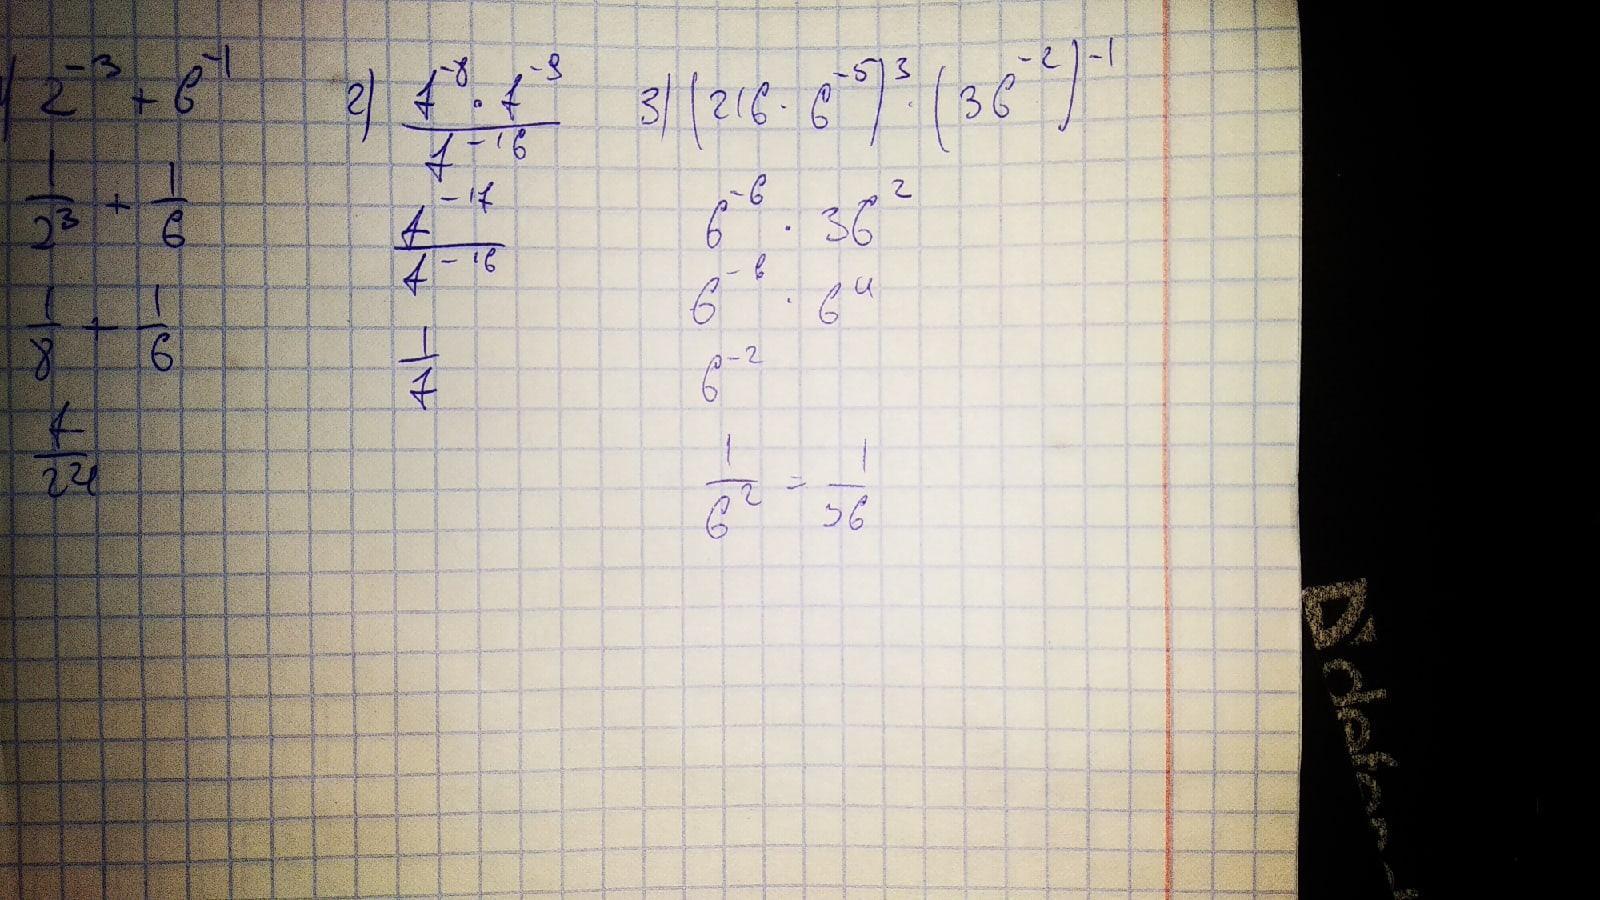 1) 2⁻³ + 6⁻¹
1/2³ + 1/6
1/8 + 1/6
7/24
2) (7⁻⁸ · 7⁻⁹)/7⁻¹⁶
7⁻¹⁷/7⁻¹⁶
1/7
3) (216 · 6⁻⁵)³ · (36⁻²)⁻¹
6⁻⁶ · 36²
6⁻⁶ · 6⁴
6⁻²
1/6² = 1/36